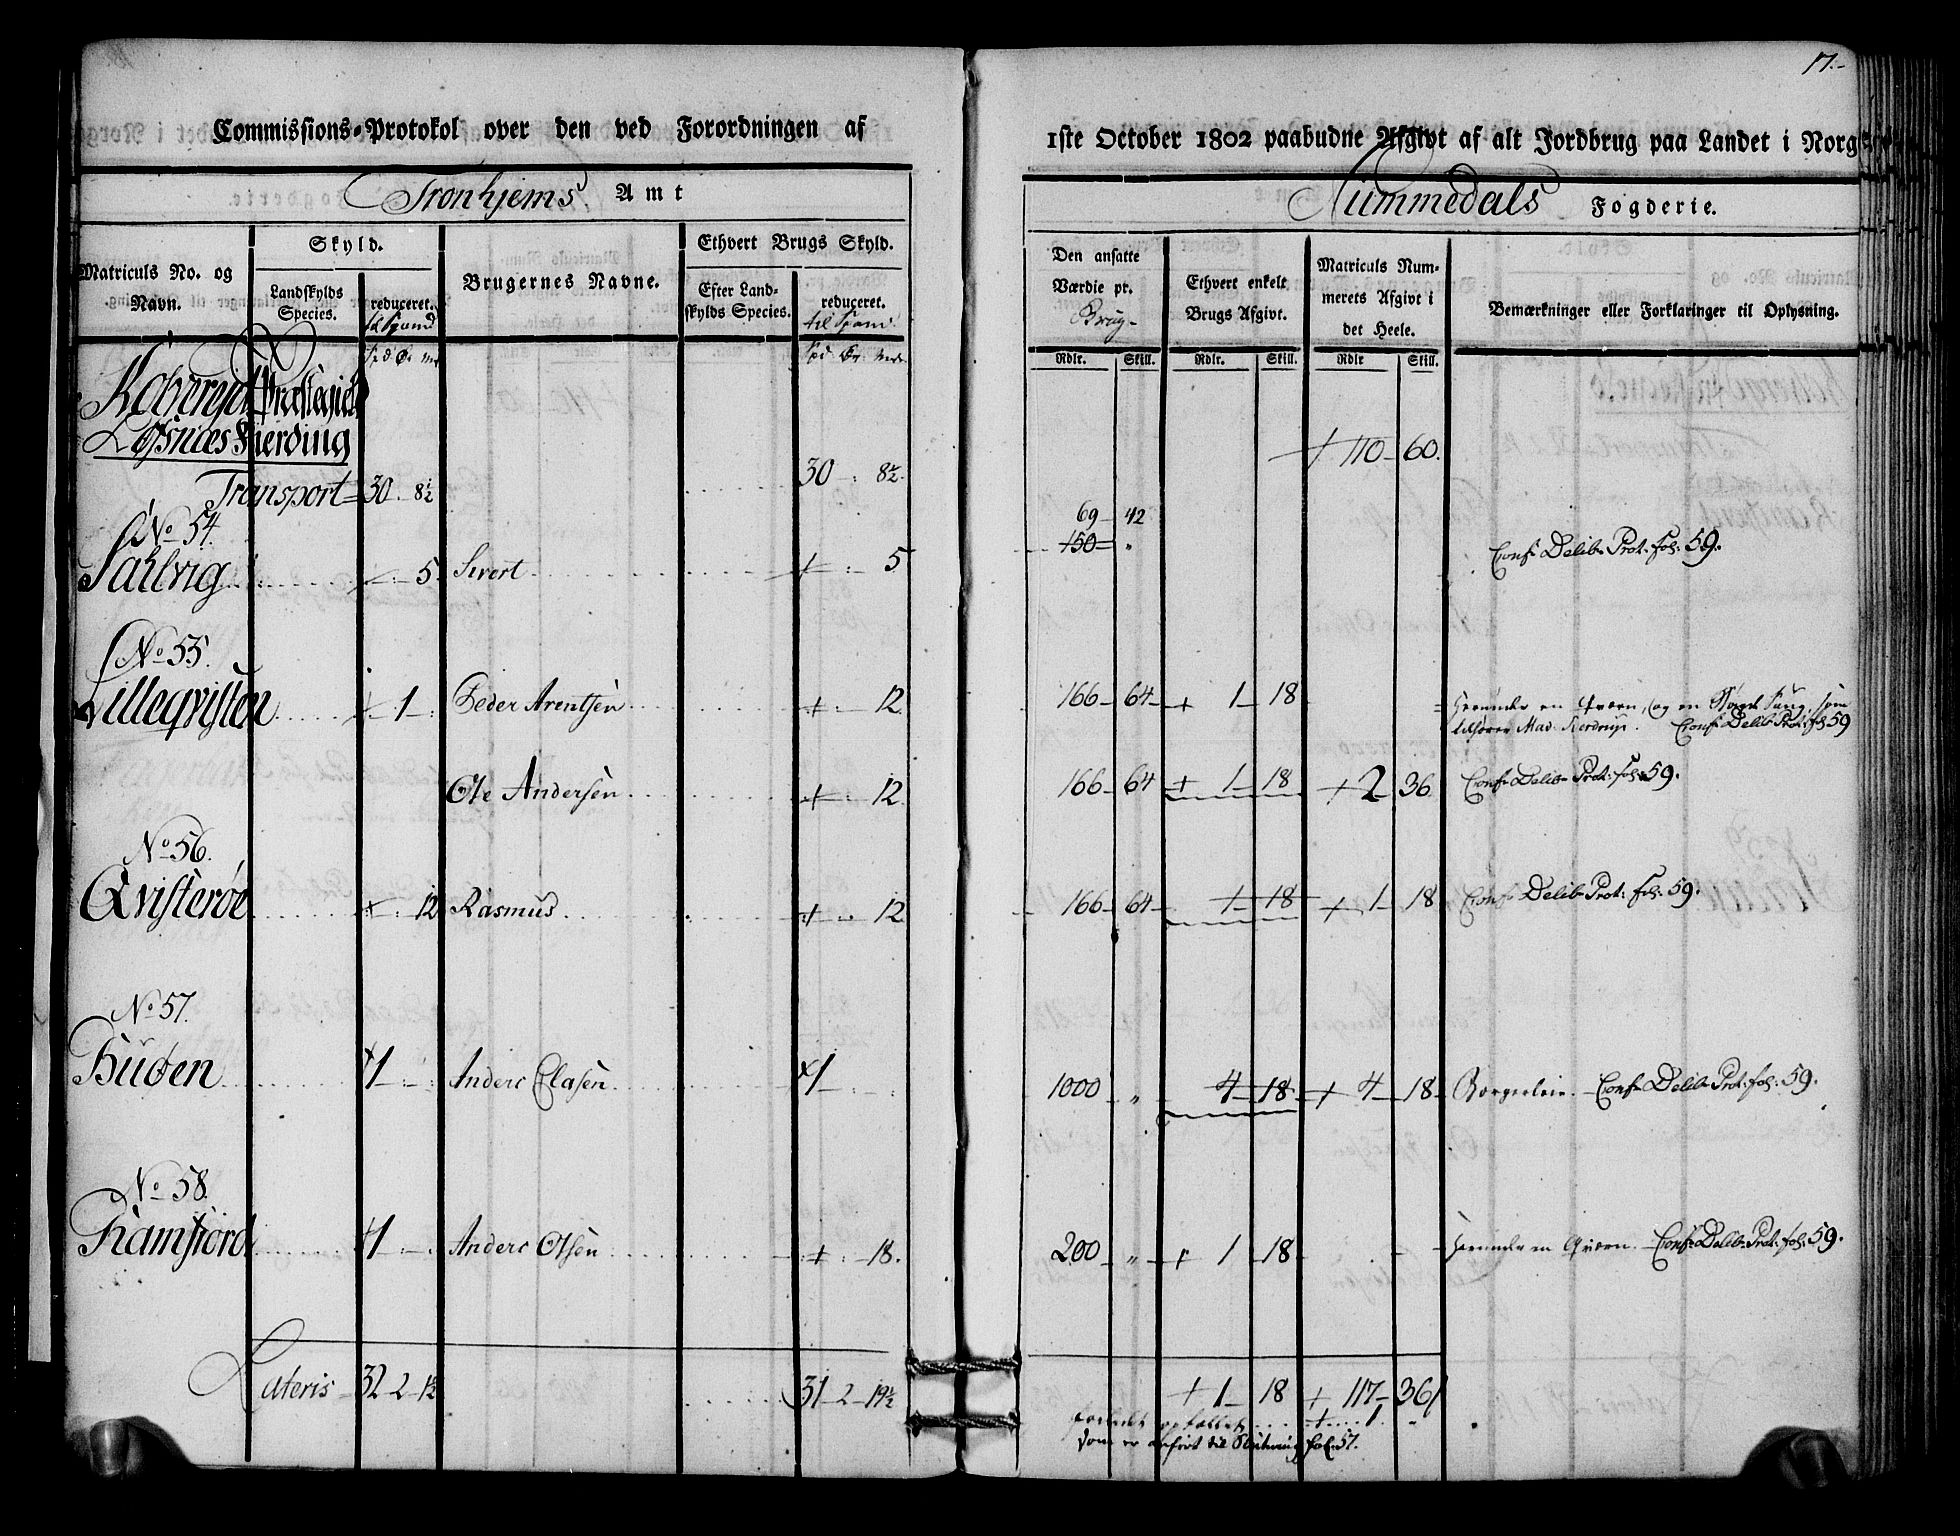 17.
Commissions-Protokol over den ved Forordningen af 1ste October 1802 paabudne Afgivt af alt Jordbrug paa Landet i Norge
Tronhjems Amt
Nummedals Fogderie.
Matriculs No. og Navn.
Skyld.
Landskylds Species.
reduceret. til Spand
Brugernes Navne.
Ethvert Brugs Skyld.
Efter Landskylds Species.
reduceret. til Spand
Den ansatte Værdie pr. Brug
Ethvert enkelt Brugs Afgivt.
Matriculs Nummerets Afgivt i det Heele.
Bemærkninger eller Forklaringer til Oplysning.
Spd Ør Mr
Spd Ør Mr
Rdlr. Skill. Rdlr. Skill. Rdlr Skill.
Kolvereid Præstegield
Løfsnæs Fierding
110 60.
Transport 30 8½ 30 8½
No 54.
69 42
150
Sahlvig 5 Sivert 5 Conf. Delib. Prot. fol. 59.
No 55.
Lilleqvisten 1 Peder Arentsen 12 166 64 1 18 Herunder en Qværn, og en
tilhører Mad. Conf. Delib. Prot. fol 59
Ole Andersen 12 166 64 1 18 2 36 Conf. Delib. Prot. fol. 59.
No 56.
Qvisterøe 12 Rasmus 12 166 64 1 18 1 18 Conf. Delib. Prot. fol. 59.
No 57.
Buøen 1 Anders Clasen 1 1000 4 18 4 18 Borgerleie. Conf. Delib. Prot. fol. 59.
No 58.
Ramfiord 1 Anders Olsen 18. 200 1 18 Herunder en Qværn. Conf. Delib. Prot. fol. 59.
Lateris 32 2 1½ 31 2 19½ 1 18 117 36
1
som er anført til Slutning fol. 57.